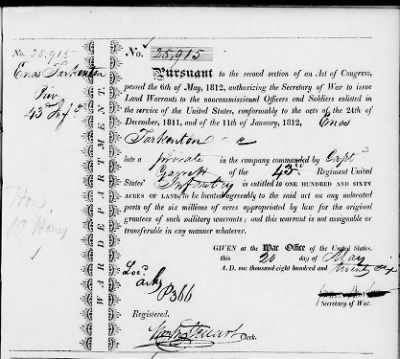 No. 25,915
No. 25,915
Enos Tarkenton
Priv
43 Inf
WAR DEPARTMENT.
Pursuant to the second section of an Act of Congress,
passed the 6th of May, 1812, authorizing the Secretary of War to issue
Land Warrants to the noncommissioned Officers and Soldiers enlisted
in the service of the United States, conformably to the acts of the 24th of
December, 1811, and of the 11th of January, 1812, Enos
Tarkenton a
late a private in the company commanded by Capt
Garrett of the 43rd Regiment United
States' Infantry is entitled to ONE HUNDRED AND SIXTY
ACRES OF LAND, to be located agreeably to the said act on any unlocated
parts of the six millions of acres appropriated by law for the original
grantees of such military warrants; and this warrant is not assignable or
transferable in any manner whatever.
GIVEN at the War Office of the United States,
this 20 day of May
A. D. one thousand eight hundred and twenty six
Loc.
Ark
P366
Secretary of War.
Registered.
Stewart Clerk.